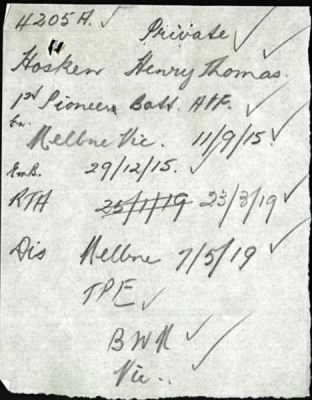 4205A. ✓ Private ✓ ✓
Hosken Henry Thomas.
1st Pioneer Batt. AIF. ✓
En. Melbne Vic. 11/9/15. ✓
Emb. 29/12/15. ✓
RTA 25/1/19 23/3/19 ✓
Dis Melbne 7/5/19 ✓
TPE ✓
BWM ✓
Vic. ✓